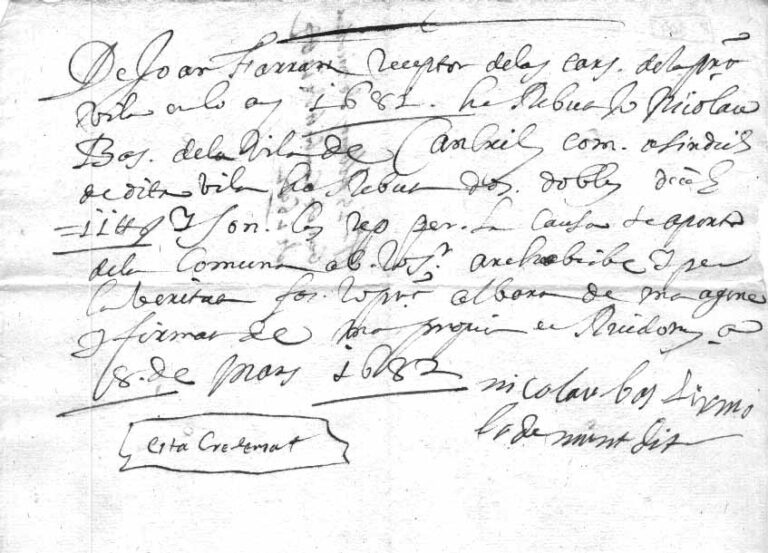 De Joan Farran receptor de las cars. de la pnt
vila en lo any 1681. ha Rebut Jo Nicolau
Bos. de la Vila de Cambrils com. a sindich
de dita vila ha Rebut dos. dobles
= 11 y son. los rep per. la causa de aporta
de la Comuna ab. archabisbe y per
la veritat fas. lo pnt albara de ma agena
y firmat de ma propia en Riudoms a
8. de Mars 1682
nicolau bos firmo
lo demunt dit
esta Credemat